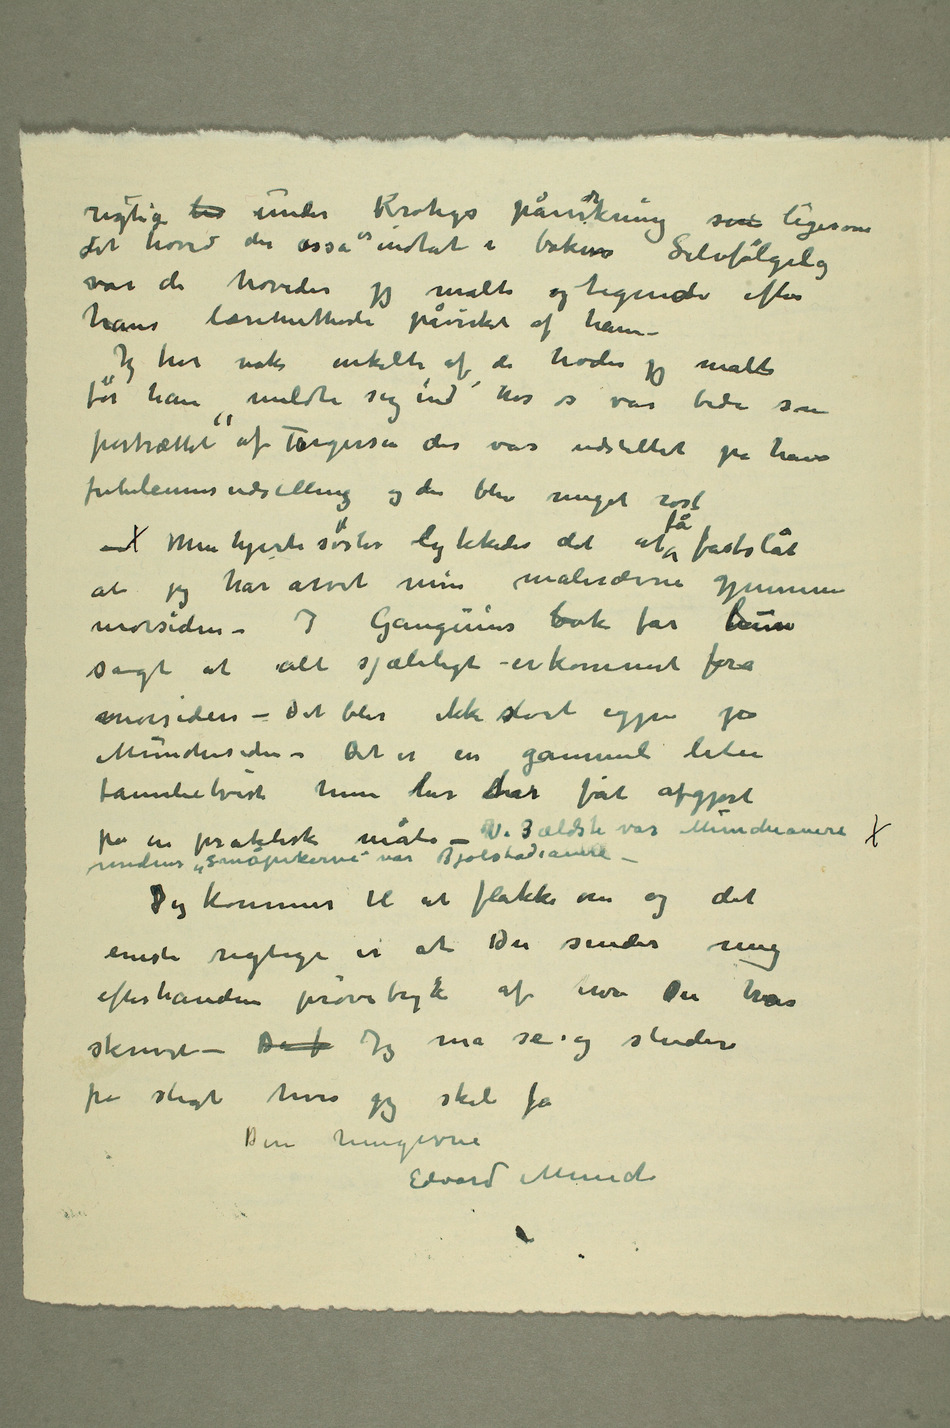 rigtig ber under Krohgs påvirkning som ligesom
det hoved der osså er indtat i boken Selvfølgelig
var de hoveder jg malte og tegnede efter
hans læremethode påvirket af ham –
Jg tror nok enkelte af de hoder jg malte
før han "meldte sig ind" hos os var bedre som
portrættet af Torgersen der var udstillet på hans
jubilæumsudstilling og der blev meget rost
– X Min hjerte søster lykkedes det at få fastslåt
at jg har arvet min malerævne gjennem
morsiden – I Gauguins bok får hun
sagt at alt sjæleligt er kommet fra
morsiden – Det blir ikke stort igjen på
Munchsiden – Det er en gammel liten
familietvist hun har får afgjort
på en praktisk måte – De 3 ældste var Munchianere X
mens „småpikerne" var Bjølstadianere –
Jeg kommer til at flakke om og det
eneste rigtige er at Du sender mig
efterhånden prøvetryk af hva Du har
skrevet – Du f Jg må se og studere
på sligt hvis jg skal få
Din hengivne
Edvard Munch